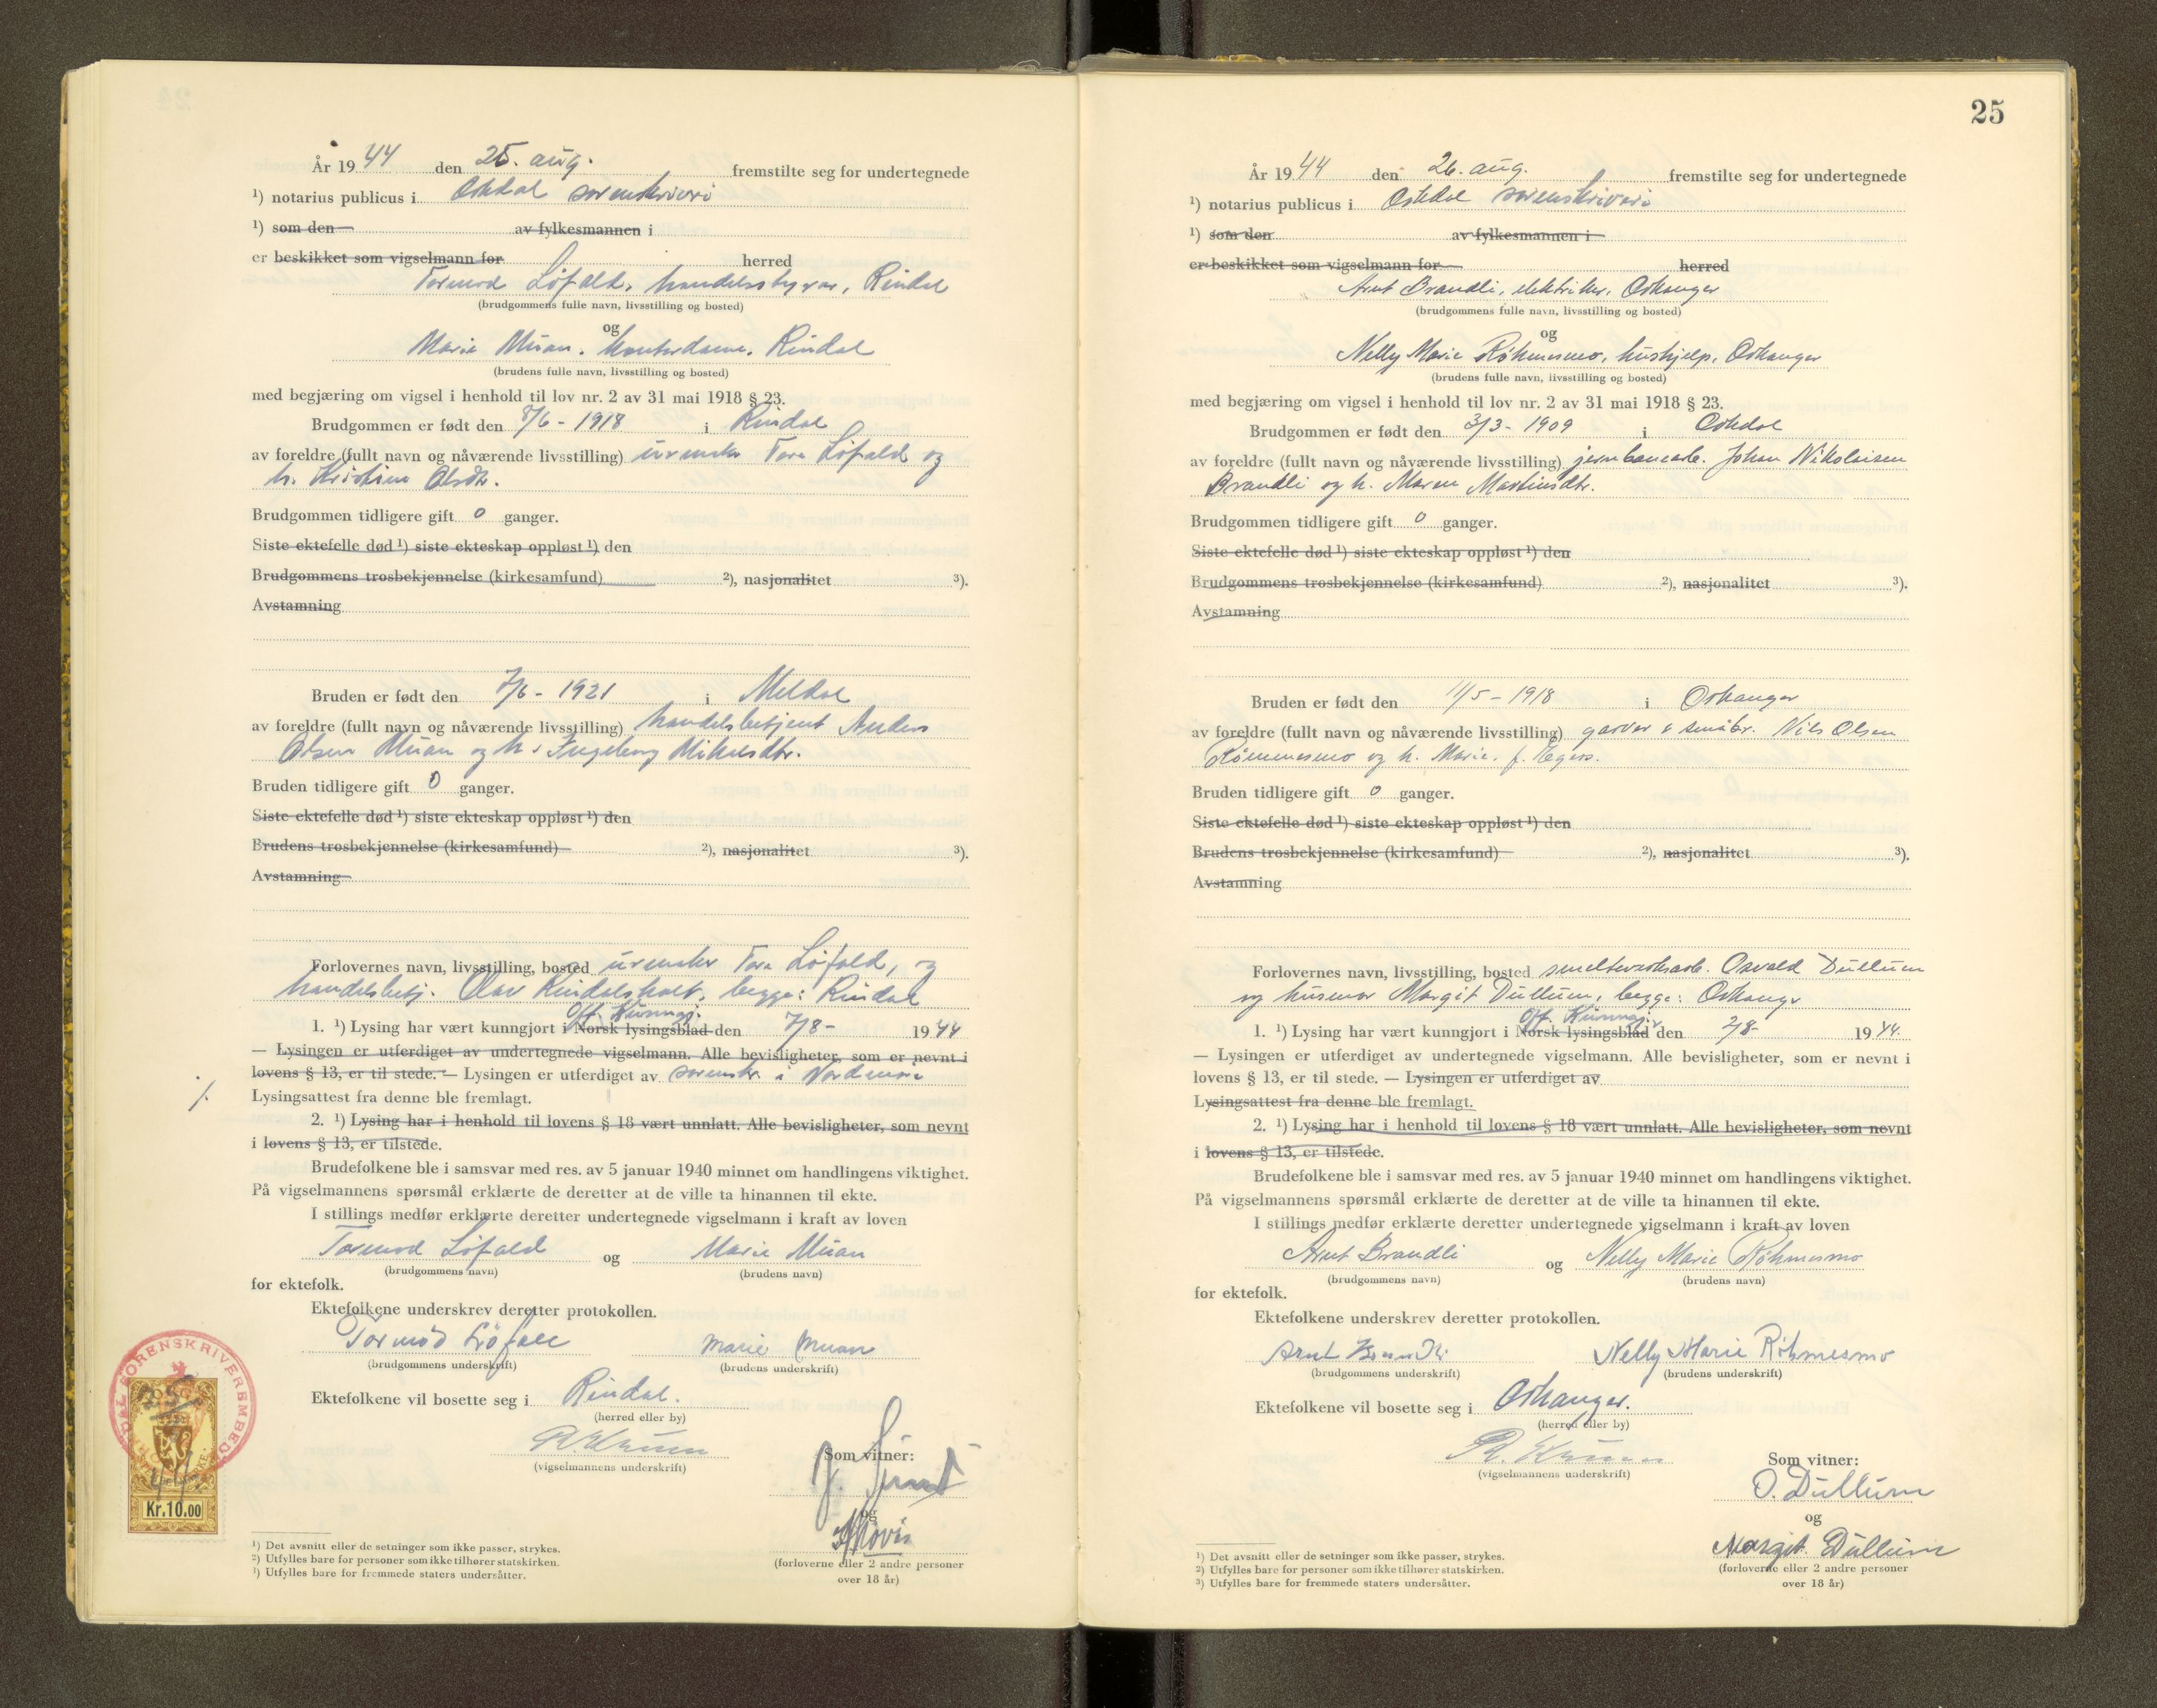 År 1944 den 25. aug. fremstilte seg for undertegnede
¹) notarius publicus i Orkdal sorenskriveri
¹) som den av fylkesmannen i
er beskikket som vigselmann for herred
Tormod Löfald, handelsstyrer, Rindal
(brudgommens fulle navn, livsstilling og bosted)
og
Marie Muan, kontordame, Rindal
(brudens fulle navn, livsstilling og bosted)
med begjæring om vigsel i henhold til lov nr. 2 av 31 mai 1918 § 23.
Brudgommen er født den 8/6 - 1918 i Rindal
av foreldre (fullt navn og nåværende livsstilling) urmaker Tore Löfald og
h. Kristine Olsdtr.
Brudgommen tidligere gift 0 ganger.
Siste ektefelle død ¹) siste ekteskap oppløst ¹) den
Brudgommens trosbekjennelse (kirkesamfund) ²), nasjonalitet ³).
Avstamning
Bruden er født den 7/6 - 1921 i Meldal
av foreldre (fullt navn og nåværende livsstilling) handelsbetjent Anders
Olsen Muan og h. Ingeborg Mikalsdtr.
Bruden tidligere gift 0 ganger.
Siste ektefelle død ¹) siste ekteskap oppløst ¹) den
Brudens trosbekjennelse (kirkesamfund) ²), nasjonalitet ³).
Avstamning
Forlovernes navn, livsstilling, bosted urmaker Tore Löfald, og
handelsbetj. Olav Rindalsholt, begge: Rindal
Off. Kunngj.
1. ¹) Lysing har vært kunngjort i Norsk lysingsblad den 7/8 - 1944
— Lysingen er utferdiget av undertegnede vigselmann. Alle bevisligheter, som er nevnt i
lovens § 13, er til stede. — Lysingen er utferdiget av sorenskr. i Nordmøre
Lysingsattest fra denne ble fremlagt.
2. ¹) Lysing har i henhold til lovens § 18 vært unnlatt. Alle bevisligheter, som nevnt
i lovens § 13, er tilstede.
Brudefolkene ble i samsvar med res. av 5 januar 1940 minnet om handlingens viktighet.
På vigselmannens spørsmål erklærte de deretter at de ville ta hinannen til ekte.
I stillings medfør erklærte deretter undertegnede vigselmann i kraft av loven
Tormod Löfald og Marie Muan
(brudgommens navn) (brudens navn)
for ektefolk.
Ektefolkene underskrev deretter protokollen.
Tormod Löfald Marie Muan
(brudgommens underskrift) (brudens underskrift)
Ektefolkene vil bosette seg i Rindal.
(herred eller by)
(vigselmannens underskrift)
Som vitner:
og
(forloverne eller 2 andre personer
over 18 år)
ORKDAL SORENSKRIVEREMBEDE
25/8
44
Kr.10.00
¹) Det avsnitt eller de setninger som ikke passer, strykes.
²) Utfylles bare for personer som ikke tilhører statskirken.
³) Utfylles bare for fremmede staters undersåtter.
25
År 1944 den 26. aug. fremstilte seg for undertegnede
¹) notarius publicus i Orkdal sorenskriveri
¹) som den av fylkesmannen i
er beskikket som vigselmann for herred
Arnt Brandli, elektriker, Orkanger
(brudgommens fulle navn, livsstilling og bosted)
og
Nelly Marie Röhmesmo, hushjelp, Orkanger
(brudens fulle navn, livsstilling og bosted)
med begjæring om vigsel i henhold til lov nr. 2 av 31 mai 1918 § 23.
Brudgommen er født den 3/3 - 1909 i Orkdal
av foreldre (fullt navn og nåværende livsstilling) jernbanearb. Johan Nikolaisen
Brandli og h. Maren Martinsdtr.
Brudgommen tidligere gift 0 ganger.
Siste ektefelle død ¹) siste ekteskap oppløst ¹) den
Brudgommens trosbekjennelse (kirkesamfund) ²), nasjonalitet ³).
Avstamning
Bruden er født den 11/5 - 1918 i Orkanger
av foreldre (fullt navn og nåværende livsstilling) garver & småbr. Nils Olsen
Römmesmo og h. Marie, f.
Bruden tidligere gift 0 ganger.
Siste ektefelle død ¹) siste ekteskap oppløst ¹) den
Brudens trosbekjennelse (kirkesamfund) ²), nasjonalitet ³).
Avstamning
Forlovernes navn, livsstilling, bosted smelteverksarb. Osvald Dullum
og husmor Margit Dullum, begge: Orkanger
Off. Kunngj.
1. ¹) Lysing har vært kunngjort i Norsk lysingsblad den 2/8- 1944.
— Lysingen er utferdiget av undertegnede vigselmann. Alle bevisligheter, som er nevnt i
lovens § 13, er til stede. — Lysingen er utferdiget av
Lysingsattest fra denne ble fremlagt.
2. ¹) Lysing har i henhold til lovens § 18 vært unnlatt. Alle bevisligheter, som nevnt
i lovens § 13, er tilstede.
Brudefolkene ble i samsvar med res. av 5 januar 1940 minnet om handlingens viktighet.
På vigselmannens spørsmål erklærte de deretter at de ville ta hinannen til ekte.
I stillings medfør erklærte deretter undertegnede vigselmann i kraft av loven
Arnt Brandli og Nelly Marie Röhmesmo
(brudgommens navn) (brudens navn)
for ektefolk.
Ektefolkene underskrev deretter protokollen.
Arnt Brandli Nelly Marie Röhmesmo
(brudgommens underskrift) (brudens underskrift)
Ektefolkene vil bosette seg i Orkanger.
(herred eller by)
(vigselmannens underskrift)
Som vitner:
O. Dullum
og
Margit Dullum
(forloverne eller 2 andre personer
over 18 år)
¹) Det avsnitt eller de setninger som ikke passer, strykes.
²) Utfylles bare for personer som ikke tilhører statskirken.
³) Utfylles bare for fremmede staters undersåtter.